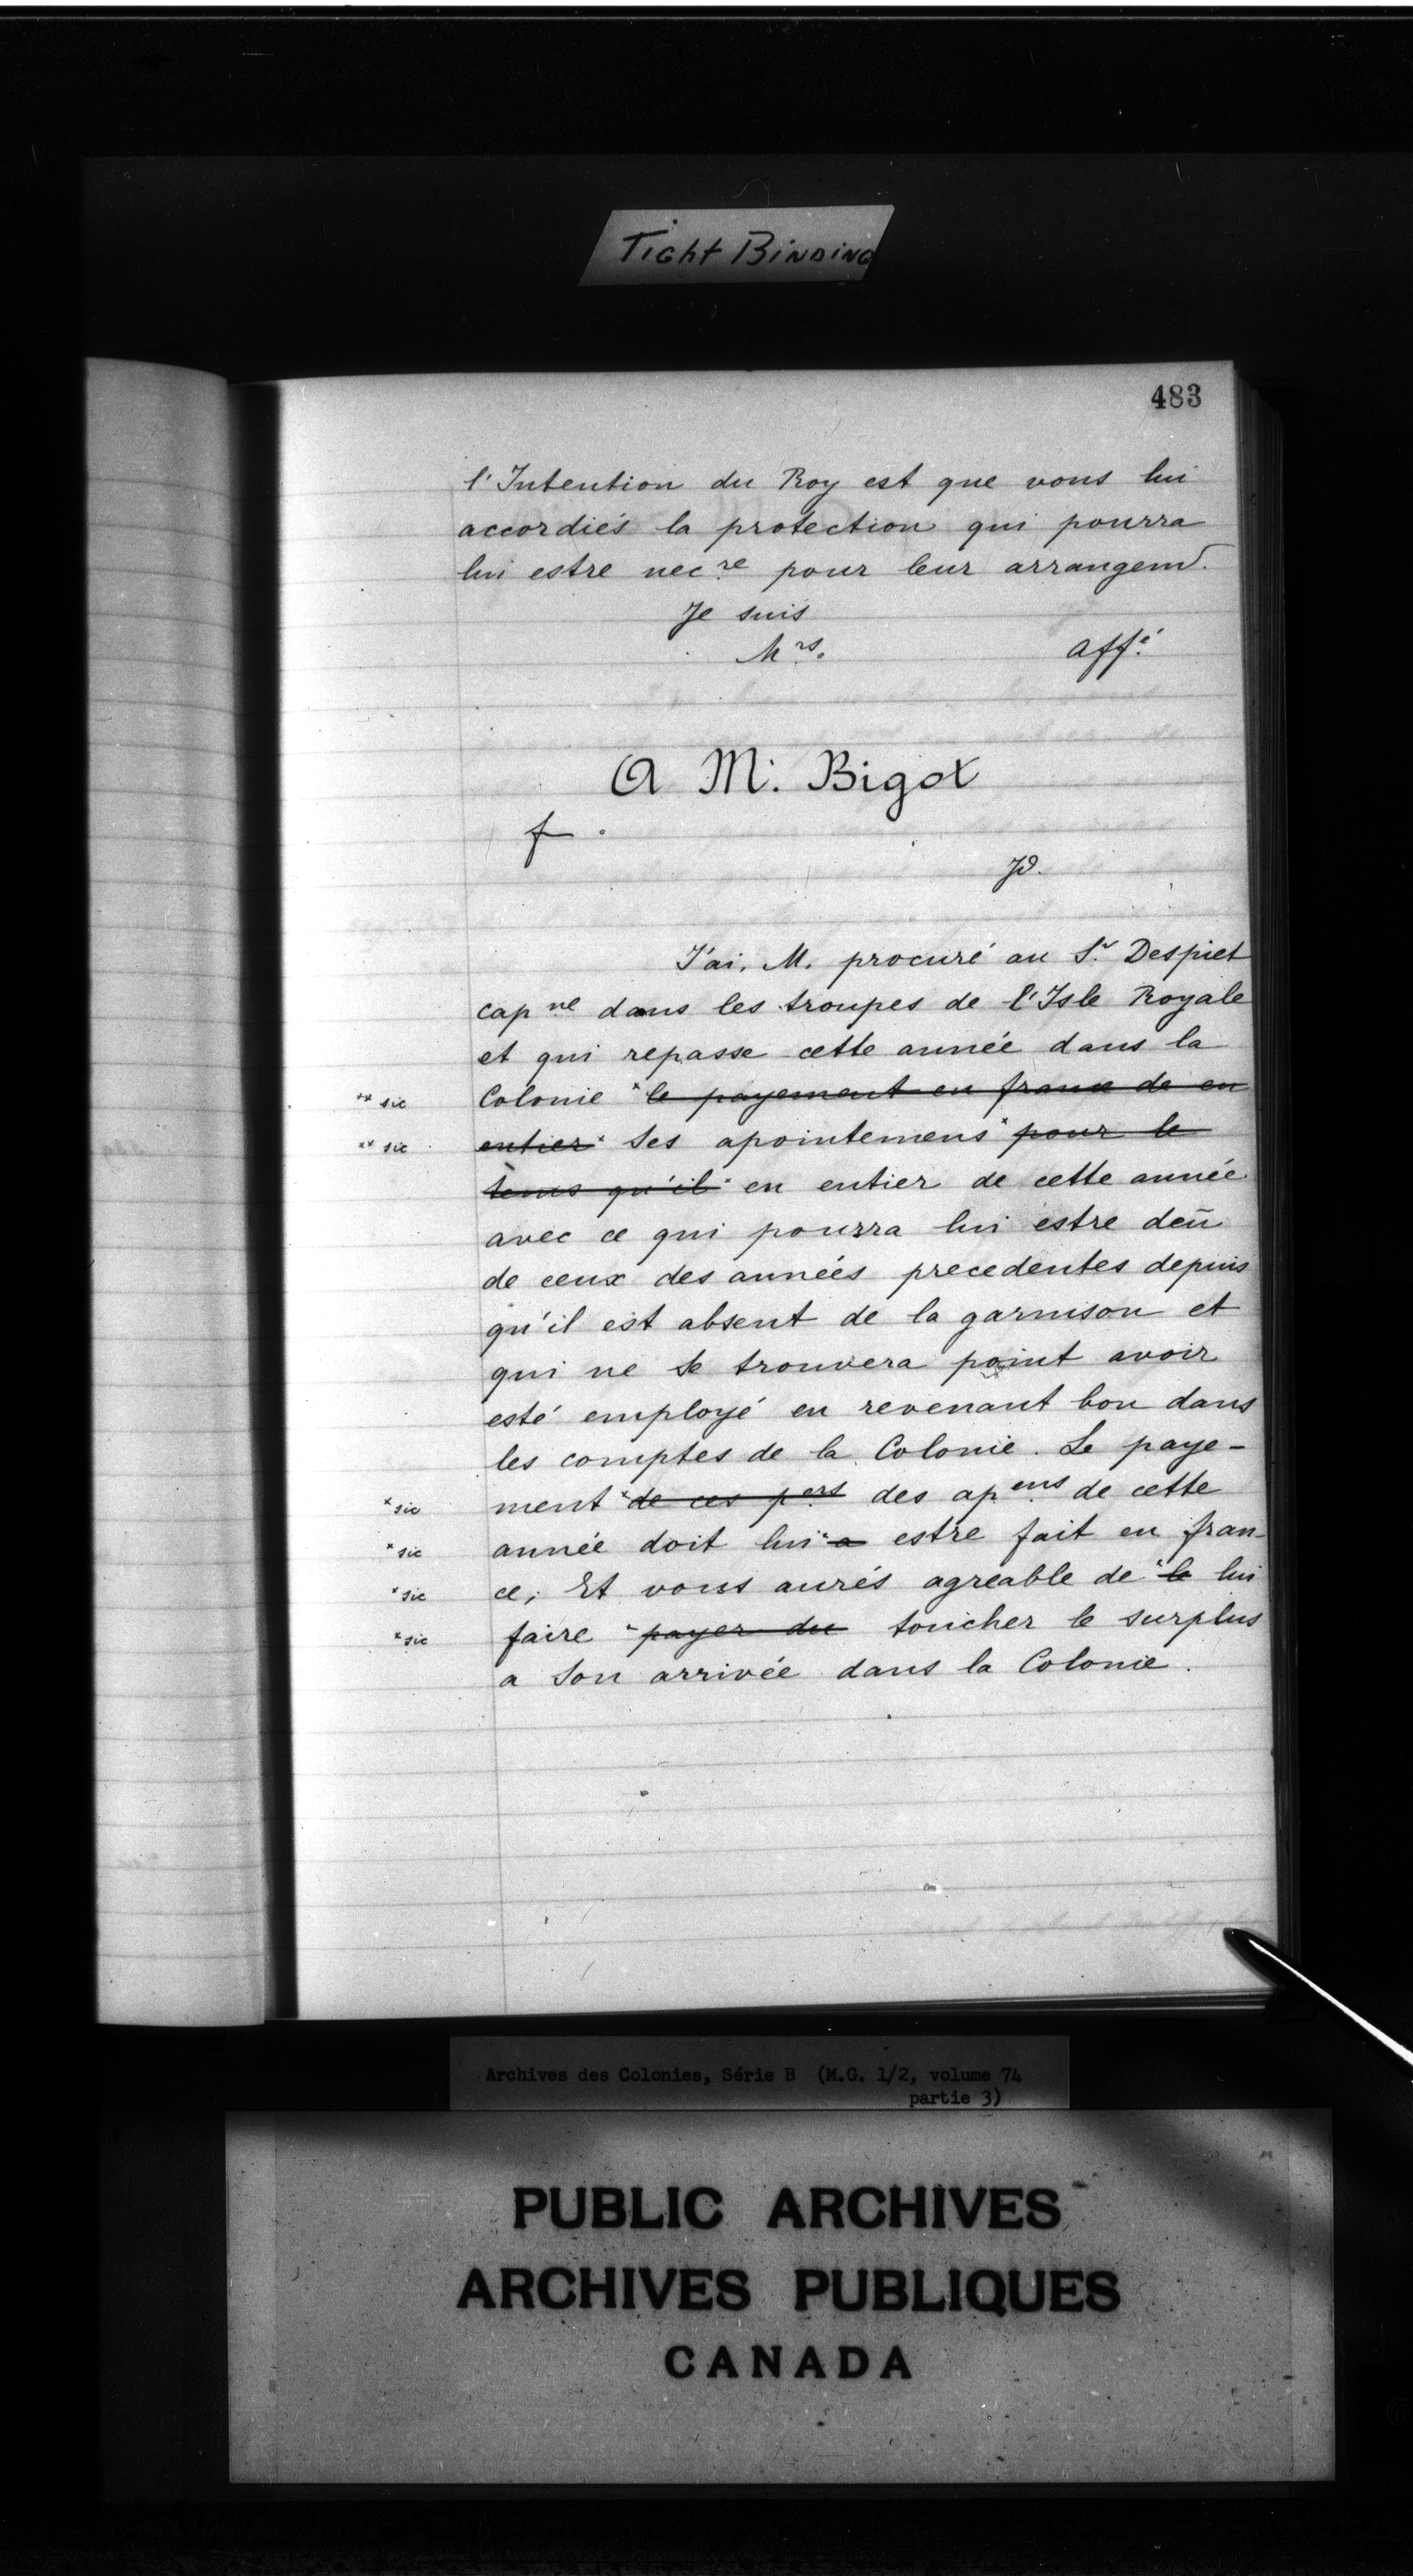 Tight Binding
483
l'Intention du Roy est que vous lui
accordiés la protection qui pourra
lui estre necre pour leur arrangemt.
Je suis
Mrs. affé
A M. Bigot
f.
Jd.
J'ai, M. procuré au Sr. Despiet
capne dans les troupes de l'Isle Royale
et qui repasse cette année dans la
** sic Colonie * le payement en france de en
** sic entier * ses apointemens * pour le
tems qu'il * en entier de cette année
avec ce qui pourra lui estre deü
de ceux des années precedentes depuis
qu'il est absent de la garnison et
qui ne se trouvera point avoir
esté employé en revenant bon dans
les comptes de la Colonie. Le paye-
* sic ment * de ces pers des apens de cette
* sic année doit lui * a estre fait en fran-
* sic ce; Et vous aurés agreable de * le lui
* sic faire * payer du toucher le surplus
a son arrivée dans la Colonie.
Archives des Colonies, Série B (M.G. 1/2, volume 74
partie 3)
PUBLIC ARCHIVES
ARCHIVES PUBLIQUES
CANADA